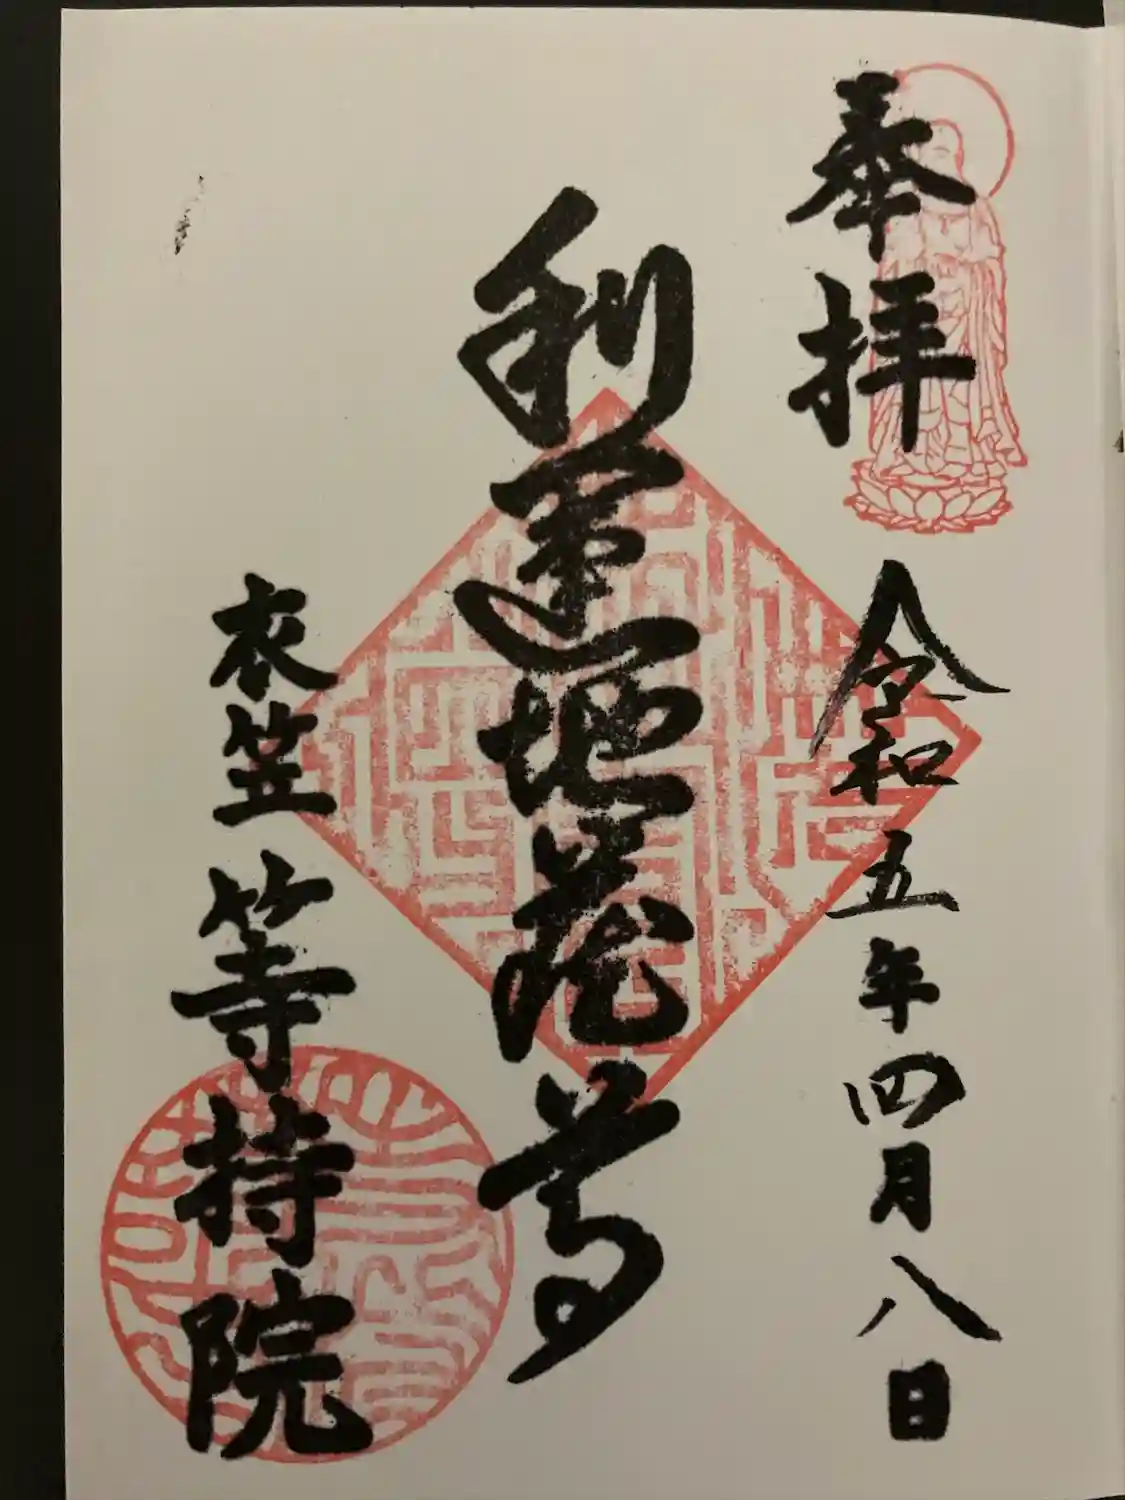 奉拝
令和五年四月八日
利運地蔵尊
衣笠 等持院